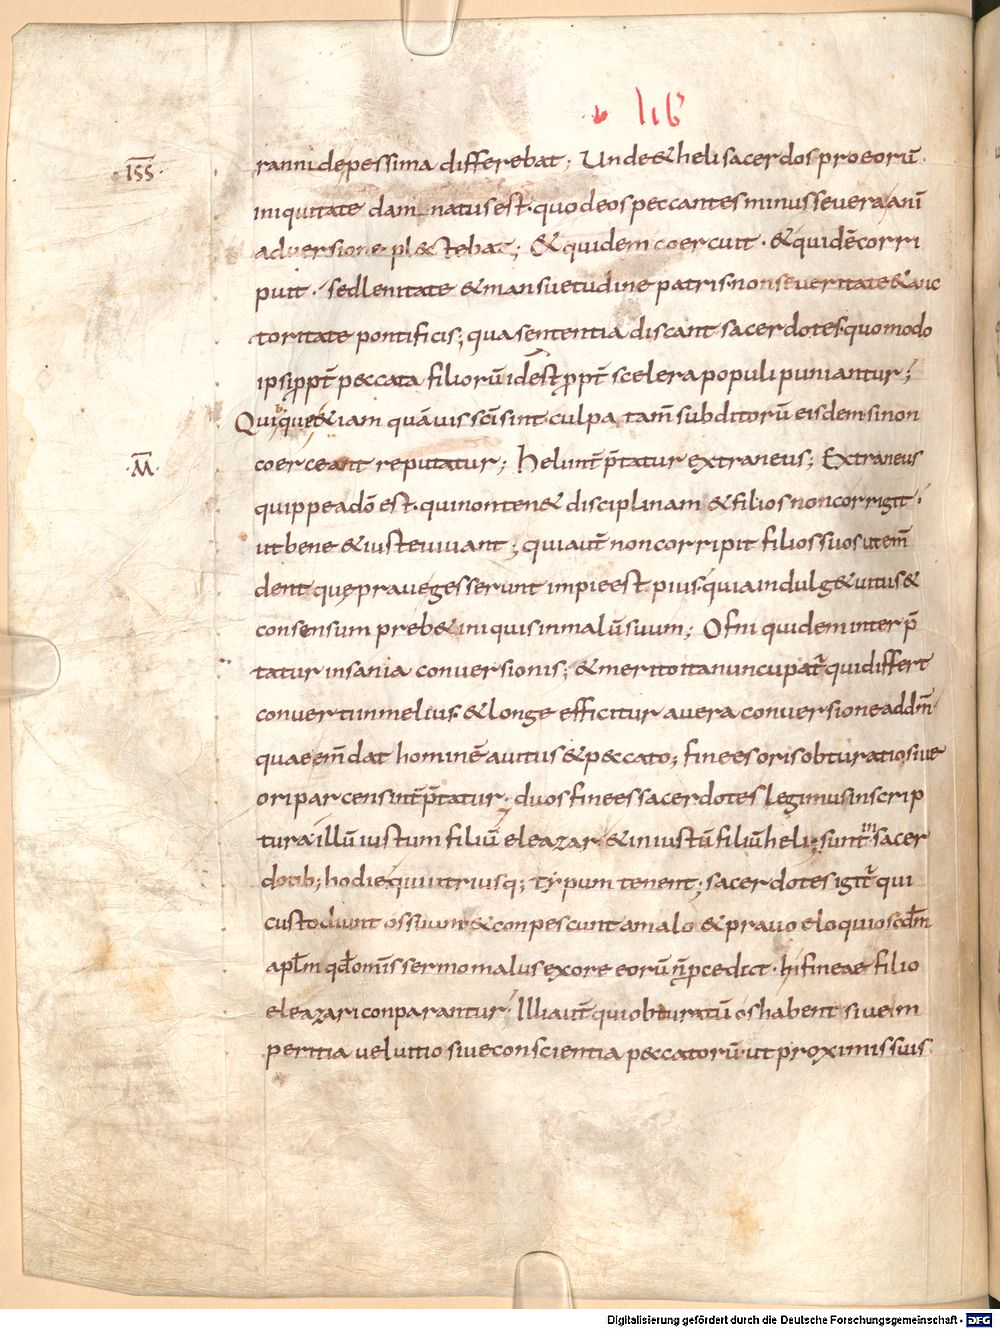 lib
ISS
ranni de pessima differebat; Unde & heli sacerdos pro eorū
iniquitate damnatus est. quod eos peccantes minus severa anī
adversione pl&tebat; & quidem coercuit. & quidē corri
puit. sed lenitate & mansuetudine patris. non severitate & auc
toritate pontificis; qua sententia discant sacerdotes quomodo
ipsi ꝓpt̄ peccata filiorū id est ꝓpt̄ scelera populi puniantur;
Quique &iam quāvis sc̄i sint culpa tam̄ subditorū eisdem si non
coerceant reputatur; Heli int̄p̄tatur extraneus; Extraneus
M̄
quippe a dō est. qui non ten& disciplinam & filios non corrigit.
ut bene & iuste vivant; qui aut̄ non corripit filios suos ut em̄
dent que prave gesserunt impie est pius. quia indulg& vitiis &
consensum preb& iniquis in malū suum; Ofni quidem interp̄
tatur insania conversionis; & merito ita nuncupat̄ qui differt
converti in melius. & longe efficitur a vera conversione ad dm̄
quae em̄dat hominē a vitiis & peccato; finees oris obturatio sive
ori parcens int̄p̄tatur. duos finees sacerdotes legimus in scrip
tura illū iustum filiū eleazar. & iniustū filiū heli; sunt in sacer
dotib; hodie qui utriusq; typum tenent; sacerdotes igit̄ qui
custodiunt os suum & conpescunt a malo & pravo eloquio scdm̄
aplm̄ qd̄ omīs sermo malus ex ore eorū n̄ ꝓcedit. hi fineae filio
eleazari conparantur Illi aut̄ qui obturatū os habent sive im
peritia vel vitio sive conscientia peccatorū ut proximis suis
Digitalisierung gefördert durch die Deutsche Forschungsgemeinschaft - DFG